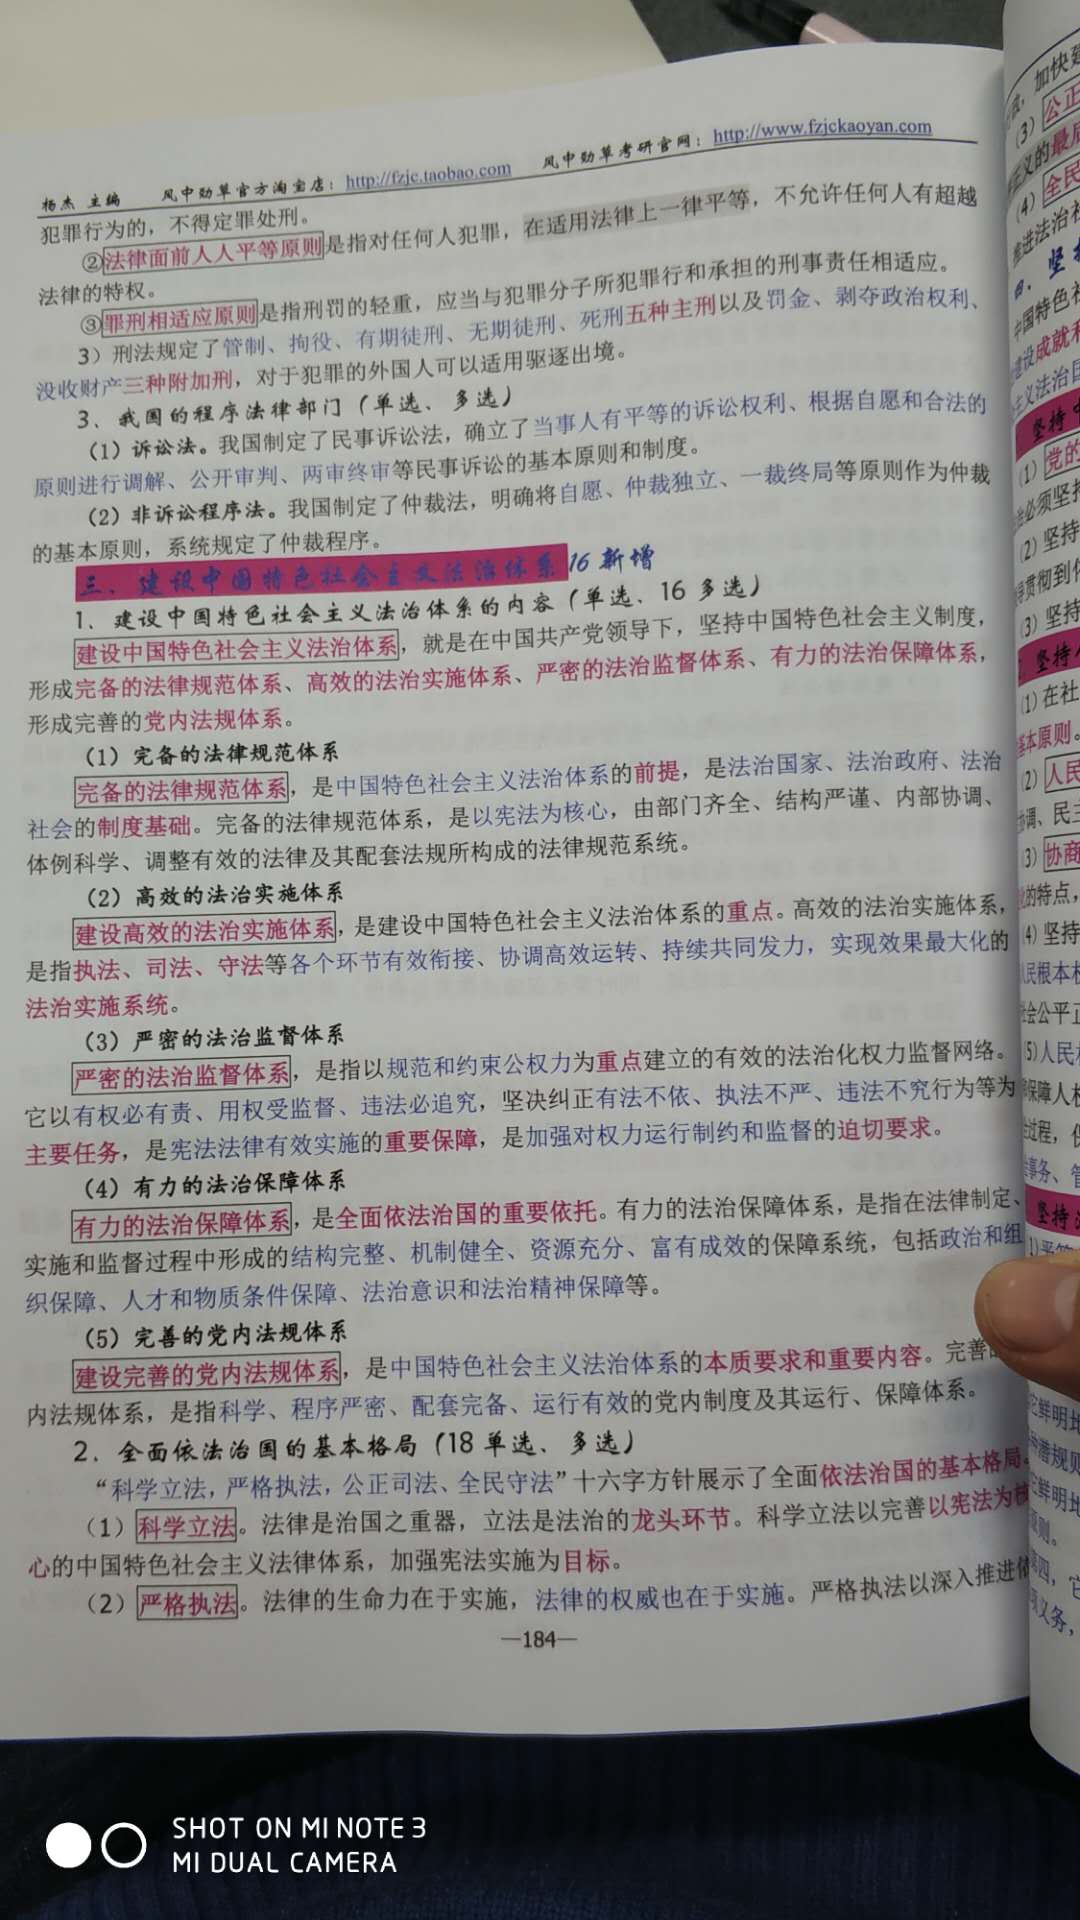 杨杰 主编 风中劲草官方淘宝店：http://fzjc.taobao.com 风中劲草考研官网：http://www.fzjckaoyan.com
犯罪行为的，不得定罪处刑。
②法律面前人人平等原则是指对任何人犯罪，在适用法律上一律平等，不允许任何人有超越
法律的特权。
③罪刑相适应原则是指刑罚的轻重，应当与犯罪分子所犯罪行和承担的刑事责任相适应。
3）刑法规定了管制、拘役、有期徒刑、无期徒刑、死刑五种主刑以及罚金、剥夺政治权利、
没收财产三种附加刑，对于犯罪的外国人可以适用驱逐出境。
3．我国的程序法律部门（单选、多选）
（1）诉讼法。我国制定了民事诉讼法，确立了当事人有平等的诉讼权利、根据自愿和合法的
原则进行调解、公开审判、两审终审等民事诉讼的基本原则和制度。
（2）非诉讼程序法。我国制定了仲裁法，明确将自愿、仲裁独立、一裁终局等原则作为仲裁
的基本原则，系统规定了仲裁程序。
三．建设中国特色社会主义法治体系 16新增
1．建设中国特色社会主义法治体系的内容（单选、16多选）
建设中国特色社会主义法治体系，就是在中国共产党领导下，坚持中国特色社会主义制度，
形成完备的法律规范体系、高效的法治实施体系、严密的法治监督体系、有力的法治保障体系，
形成完善的党内法规体系。
（1）完备的法律规范体系
完备的法律规范体系，是中国特色社会主义法治体系的前提，是法治国家、法治政府、法治
社会的制度基础。完备的法律规范体系，是以宪法为核心，由部门齐全、结构严谨、内部协调、
体例科学、调整有效的法律及其配套法规所构成的法律规范系统。
（2）高效的法治实施体系
建设高效的法治实施体系，是建设中国特色社会主义法治体系的重点。高效的法治实施体系，
是指执法、司法、守法等各个环节有效衔接、协调高效运转、持续共同发力，实现效果最大化的
法治实施系统。
（3）严密的法治监督体系
严密的法治监督体系，是指以规范和约束公权力为重点建立的有效的法治化权力监督网络。
它以有权必有责、用权受监督、违法必追究，坚决纠正有法不依、执法不严、违法不究行为等为
主要任务，是宪法法律有效实施的重要保障，是加强对权力运行制约和监督的迫切要求。
（4）有力的法治保障体系
有力的法治保障体系，是全面依法治国的重要依托。有力的法治保障体系，是指在法律制定、
实施和监督过程中形成的结构完整、机制健全、资源充分、富有成效的保障系统，包括政治和组
织保障、人才和物质条件保障、法治意识和法治精神保障等。
（5）完善的党内法规体系
建设完善的党内法规体系，是中国特色社会主义法治体系的本质要求和重要内容。完善
内法规体系，是指科学、程序严密、配套完备、运行有效的党内制度及其运行、保障体系。
2．全面依法治国的基本格局（18单选、多选）
“科学立法，严格执法，公正司法、全民守法”十六字方针展示了全面依法治国的基本格局。
（1）科学立法。法律是治国之重器，立法是法治的龙头环节。科学立法以完善以宪法为核
心的中国特色社会主义法律体系，加强宪法实施为目标。
（2）严格执法。法律的生命力在于实施，法律的权威也在于实施。严格执法以深入推进依
—184—
，加快建
（3）公正
主义的最后
（4）全民
推进法治社
四．坚持
中国特色社
建设成就和
主义法治国
坚持
（1）党的
治必须坚持
（2）坚持
导贯彻到依
（3）坚持
坚持人
（1）在社
基本原则。
（2）人民
协调、民主
（3）协商
的特点，
（4）坚持
人民根本权
社会公平正
（5）人民
保障人权
过程，
事务、管
坚持
它鲜明地
种潜规则
它鲜明地
规则。
第四，它
项义务，
SHOT ON MI NOTE 3
MI DUAL CAMERA